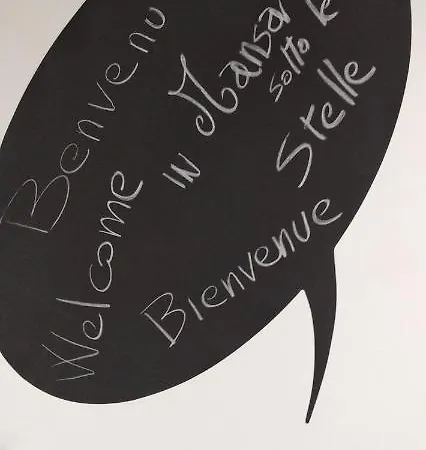 Benvenu
Welcome
IN Mansar
Sotto le
Stelle
Bienvenue